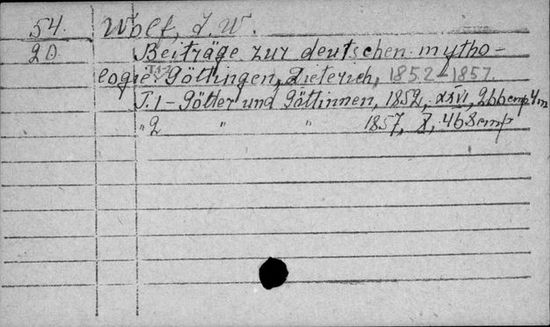 54. Wolf, J. W.
20 Beiträge zur deutschen mytho-
logie. Göttingen, Dieterich, 1852-1857.
T. 1 - Götter und Göttinnen, 1852, XXVI,
" 2 " " 1857, X, 468 emp